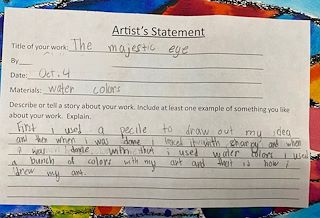 Artist's Statement
Title of your work: The majestic eye
By
Date: Oct. 4
Materials: water colors
Describe or tell a story about your work. Include at least one example of something you like
about your work. Explain.
First i used a pecile to draw out my idea
and then when i was done i inked it with sharpy and when
i was done with that i used water colors i used
a bunch of colors with my art and that is how i
drew my art.